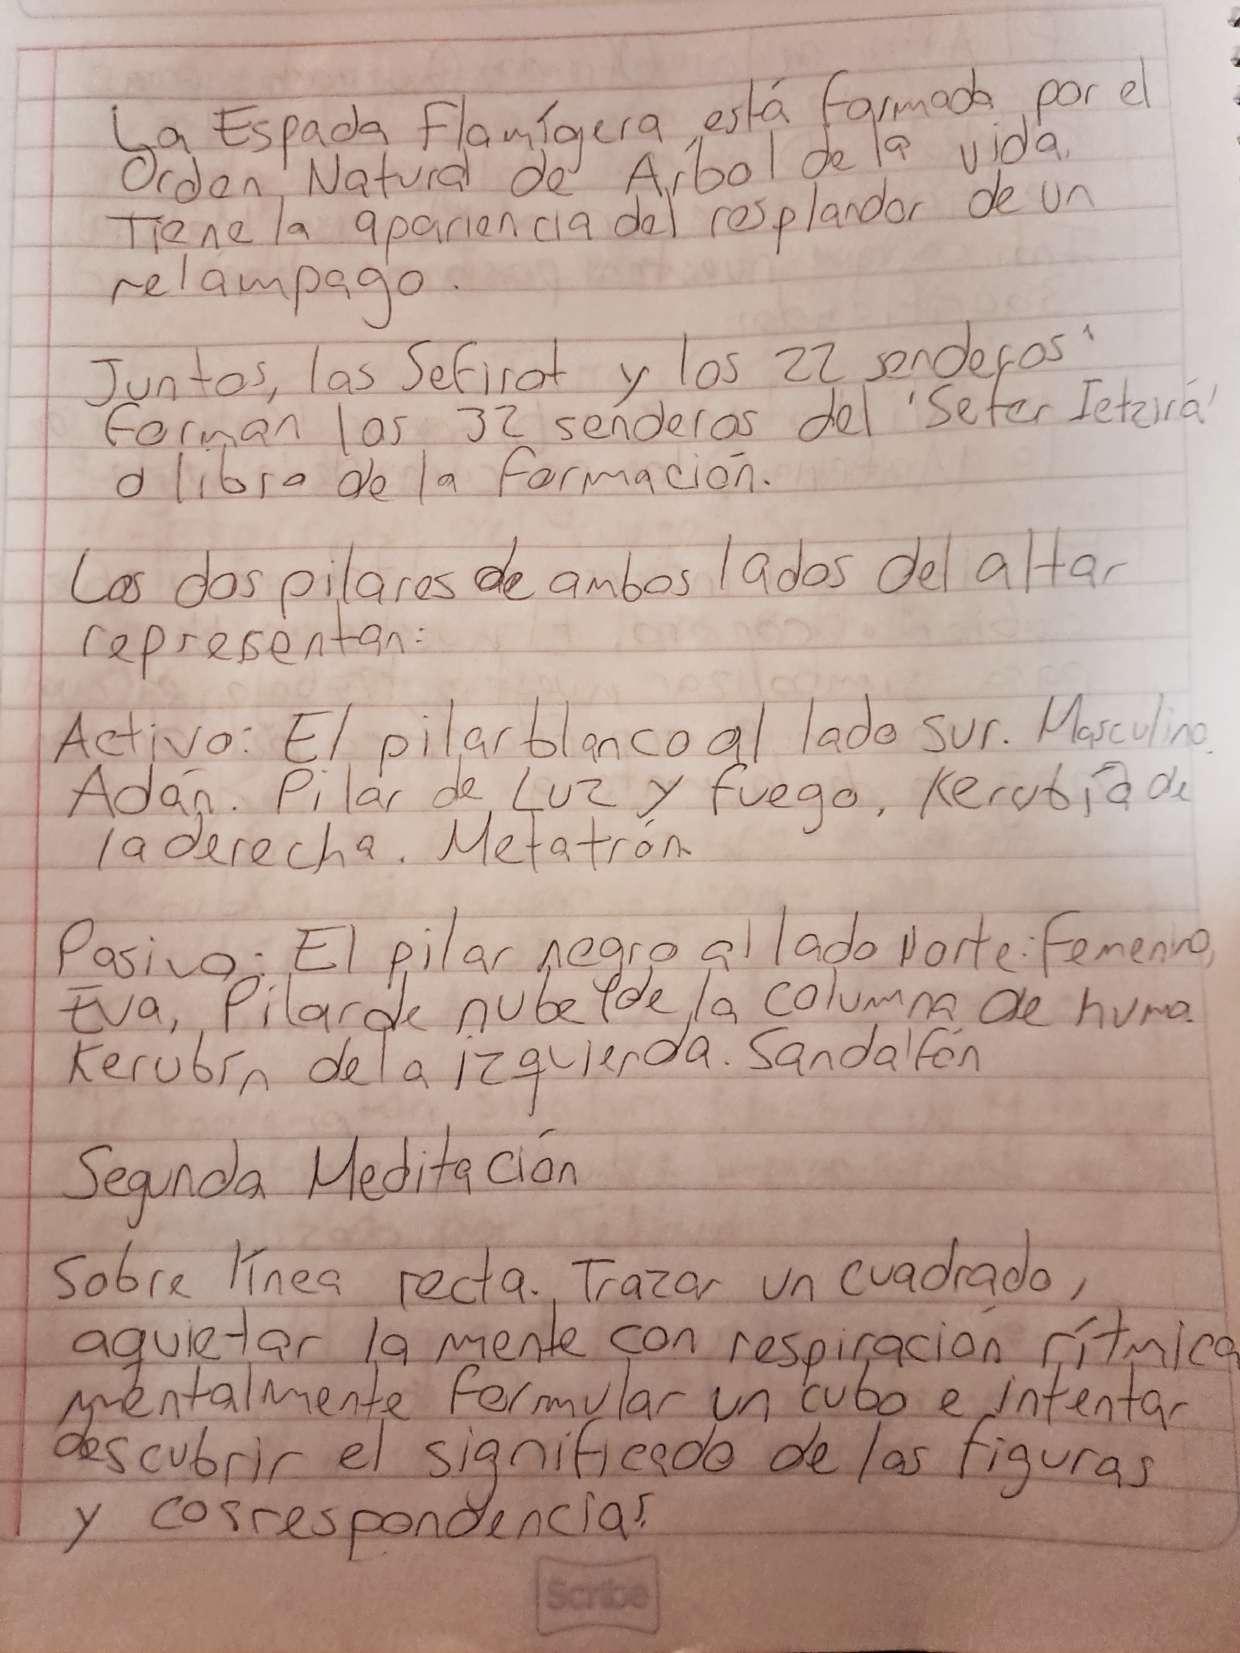 La Espada Flamígera está formada por el
Orden Natural de Árbol de la vida.
Tiene la apariencia del resplandor de un
relámpago.
Juntos, las Sefirot y los 22 senderos
forman los 32 senderos del 'Sefer Ietzirá'
o libro de la formación.
Los dos pilares de ambos lados del altar
representan:
Activo: El pilar blanco al lado sur. Masculino.
Adán. Pilar de Luz y fuego, Kerubín de
la derecha. Metatrón
Pasivo: El pilar negro al lado Norte: Femenino,
Eva, Pilar de nube de la columna de humo.
Kerubín de la izquierda. Sandalfón
Segunda Meditación
Sobre línea recta. Trazar un cuadrado,
aquietar la mente con respiración rítmica
mentalmente formular un cubo e intentar
descubrir el significado de las figuras
y correspondencias.
Scribe